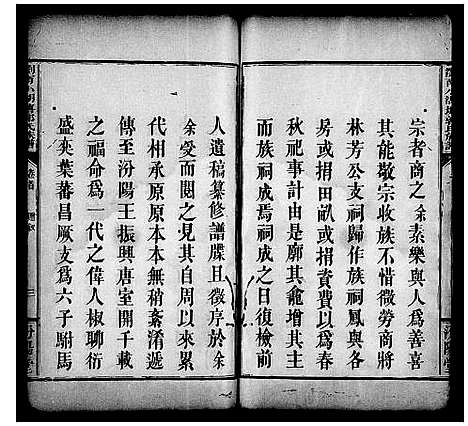 宗者商之余素樂與人爲善喜
其能敬宗收族不惜微勞商將
林芳公支祠歸作族祠鳳與各
房或捐田畝或捐資費以爲春
秋祀事計由是廓其龕增其式
而族祠成焉祠成之日復檢前
人遺稿纂修譜牒且徵序於余
余受而閱之見其自周以來累
代相承原原本本無稍紊淆遞
傳至汾陽王振興唐室開千載
之福命爲一代之偉人椒聊衍
盛爽葉蕃昌厥支爲六子駙馬